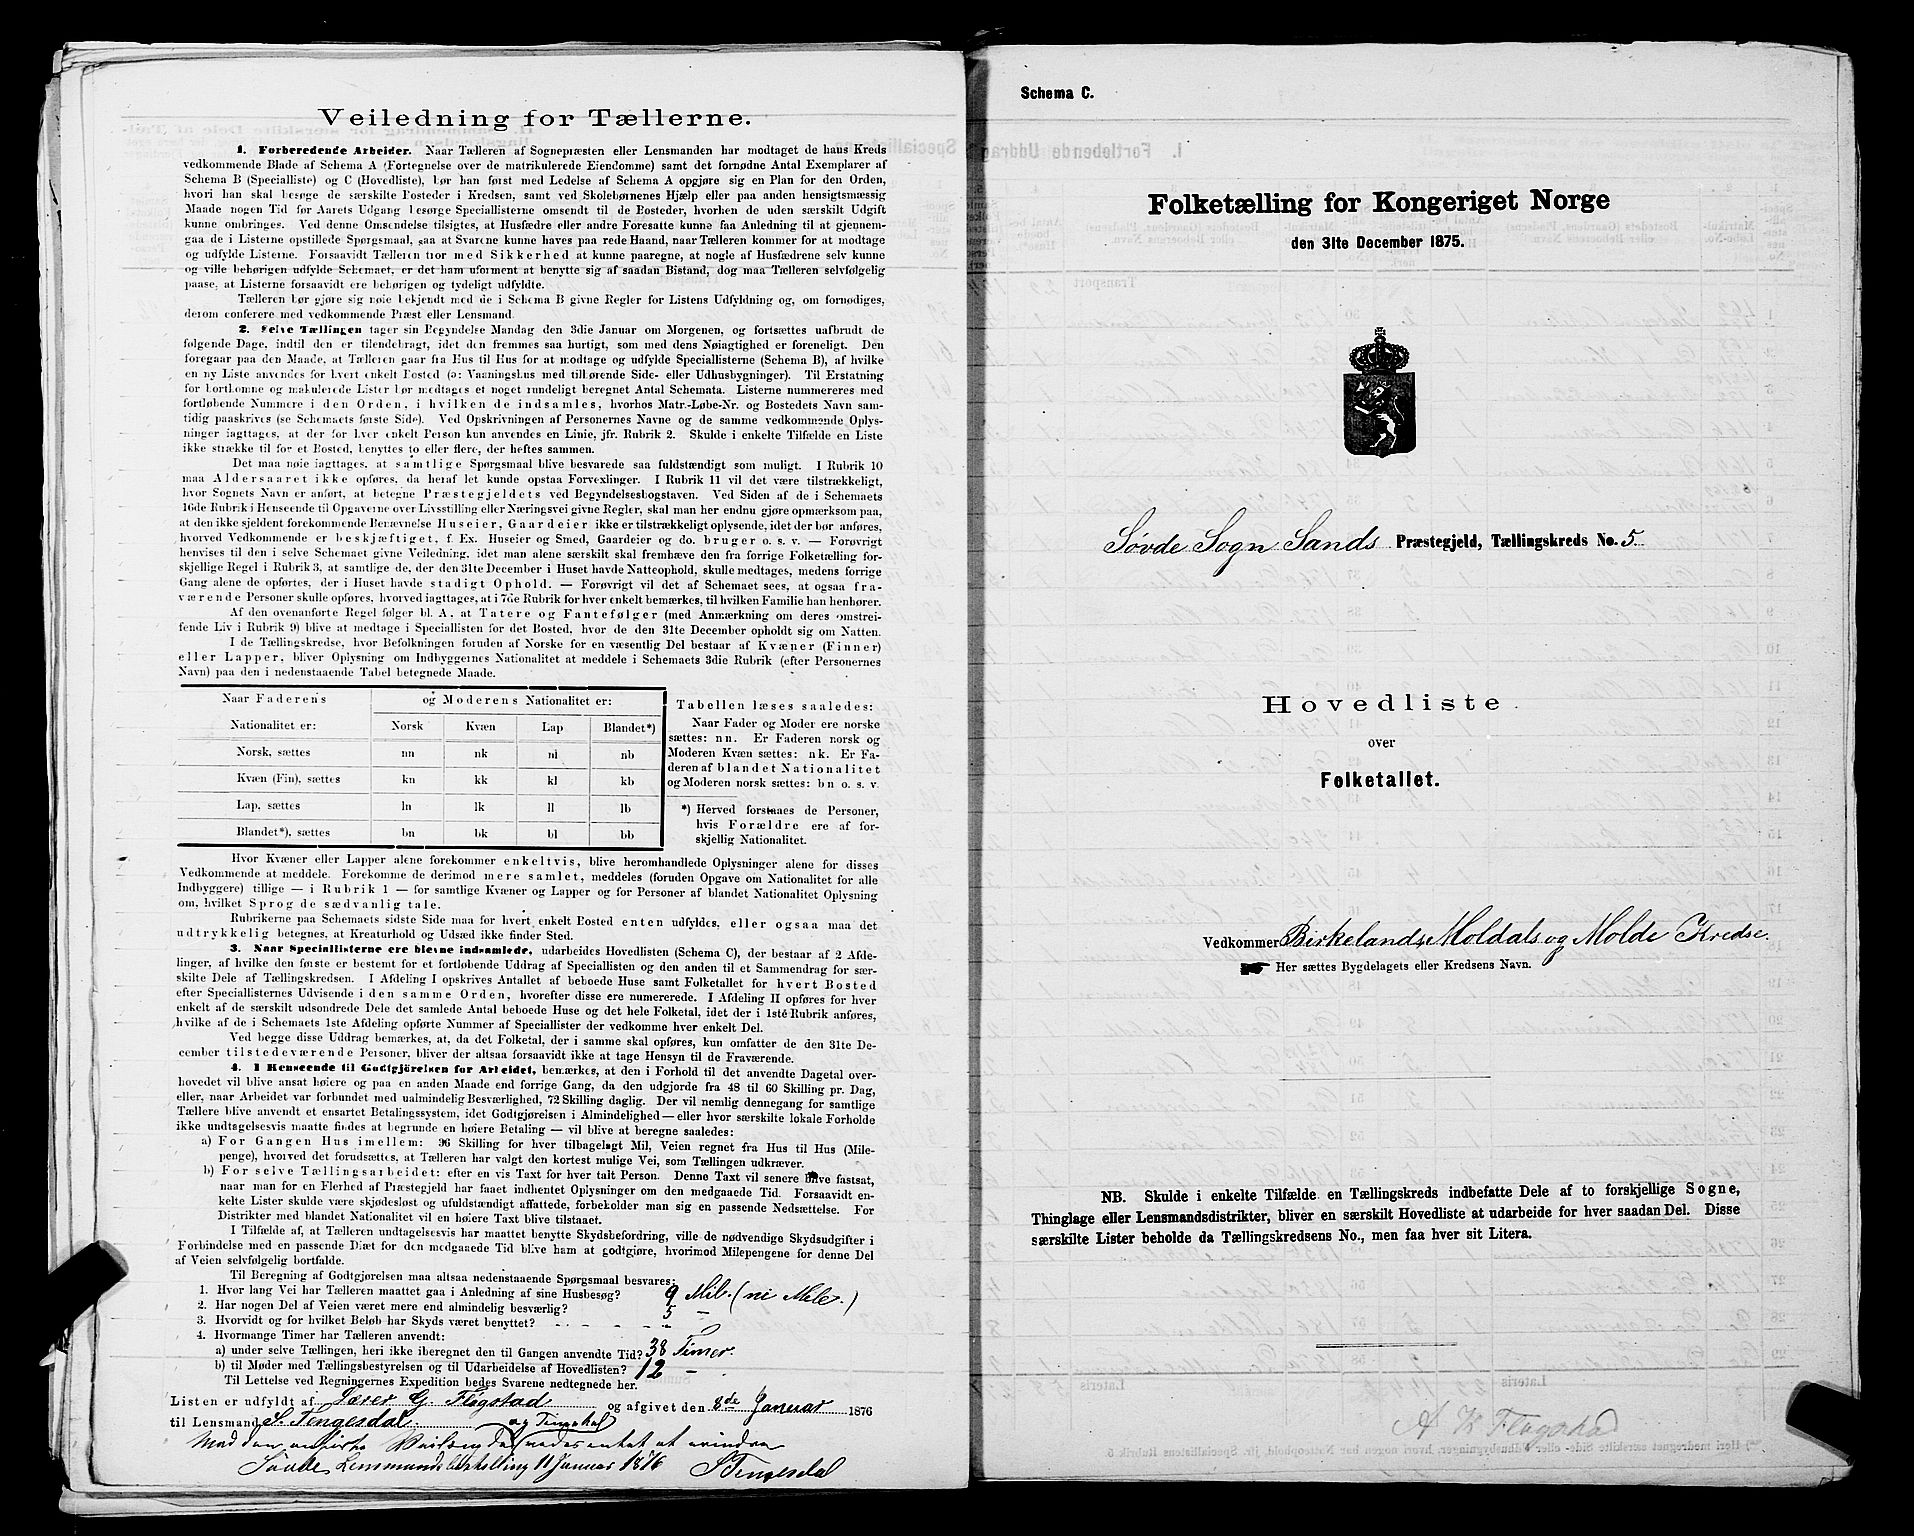 Veiledning for Tællerne.
1. Forberedende Arbeider. Naar Tælleren af Sognepræsten eller Lensmanden har modtaget de hans Kreds
vedkommende Blade af Schema A (Fortegnelse over de matrikulerede Eiendomme) samt det fornødne Antal Exemplarer af
Schema B (Specialliste) og C (Hovedliste), bør han først med Ledelse af Schema A opgjøre sig en Plan for den Orden,
hvori han skal besøge de særskilte Bosteder i Kredsen, samt ved Skolebørnenes Hjælp eller paa anden hensigtsmæssig
Maade nogen Tid før Aarets Udgang besørge Speciallisterne omsendt til de Bosteder, hvorhen de uden særskilt Udgift
kunne ombringes. Ved denne Omsendelse tilsigtes, at Husfædre eller andre Foresatte kunne faa Anledning til at gjennem-
gaa de i Listerne opstillede Spørgsmaal, saa at Svarene kunne haves paa rede Haand, naar Tælleren kommer for at modtage
og udfylde Listerne. Forsaavidt Tælleren tror med Sikkerhed at kunne paaregne, at nogle af Husfædrene selv kunne
og ville behørigen udfylde Schemaet, er det ham uforment at benytte sig af saadan Bistand, dog maa Tælleren selvfølgelig
paase, at Listerne forsaavidt ere behørigen og tydeligt udfyldte.
Tælleren bør gjøre sig nøie bekjendt med de i Schema B givne Regler for Listens Udfyldning og, om fornødiges,
derom conferere med vedkommende Præst eller Lensmand.
2. Selve Tællingen tager sin Begyndelse Mandag den 3die Januar om Morgenen, og fortsættes uafbrudt de
følgende Dage, indtil den er tilendebragt, idet den fremmes saa hurtigt, som med dens Nøiagtighed er foreneligt. Den
foregaar paa den Maade, at Tælleren gaar fra Hus til Hus for at modtage og udfylde Speciallisterne (Schema B), af hvilke
en ny Liste anvendes for hvert enkelt Bosted (ɔ: Vaaningshus med tilhørende Side- eller Udhusbygninger). Til Erstatning
for bortkomne og makulerede Lister bør medtages et noget rundeligt beregnet Antal Schemata. Listerne nummereres med
fortløbende Nummere i den Orden, i hvilken de indsamles, hvorhos Matr.-Løbe-Nr. og Bostedets Navn sam-
tidig paaskrives (se Schemaets første Side). Ved Opskrivningen af Personernes Navne og de samme vedkommende Oplys-
ninger iagttages, at der for hver enkelt Person kun anvendes en Linie, jfr. Rubrik 2. Skulde i enkelte Tilfælde en Liste
ikke strække til for et Bosted, benyttes to eller flere, der heftes sammen.
Det maa nøie iagttages, at samtlige Spørgsmaal blive besvarede saa fuldstændigt som muligt. I Rubrik 10
maa Aldersaaret ikke opføres, da heraf let kunde opstaa Forvexlinger. I Rubrik 11 vil det være tilstrækkeligt,
hvor Sognets Navn er anført, at betegne Præstegjeldets ved Begyndelsesbogstaven. Ved Siden af de i Schemaets
16de Rubrik i Henseende til Opgaverne over Livsstilling eller Næringsvei givne Regler, skal man her endnu gjøre opmærksom paa,
at den ikke sjeldent forekommende Benævnelse Huseier, Gaardeier ikke er tilstrækkeligt oplysende, idet der bør anføres,
hvorved Vedkommende er beskjæftiget, f. Ex. Huseier og Smed, Gaardeier og do. bruger o. s. v. — Forøvrigt
henvises til den i selve Schemaet givne Veiledning, idet man alene særskilt skal fremhæve den fra forrige Folketælling for-
skjellige Regel i Rubrik 3, at samtlige de, der den 31te December i Huset havde Natteophold, skulle medtages, medens forrige
Gang alene de opførtes, der i Huset havde stadigt Ophold. — Forøvrigt vil det af Schemaet sees, at ogsaa fra-
værende Personer skulle opføres, hvorved iagttages, at i 7de Rubrik for hver enkelt bemærkes, til hvilken Familie han henhører.
Af den ovenanførte Regel følger bl. A. at Tatere og Fantefølger (med Anmærkning om deres omstrei-
fende Liv i Rubrik 9) blive at medtage i Speciallisten for det Bosted, hvor de den 31te December opholdt sig om Natten.
I de Tællingskredse, hvor Befolkningen foruden af Norske for en væsentlig Del bestaar af Kvæner (Finner)
eller Lapper, bliver Oplysning om Indbyggernes Nationalitet at meddele i Schemaets 3die Rubrik (efter Personernes
Navn) paa den i nedenstaaende Tabel betegnede Maade.
Naar Faderens og Moderens Nationalitet er:
Nationalitet er: Norsk Kvæn Lap Blandet*)
Norsk, sættes nn nk nl nb
Kvæn (Fin), sættes kn kk kl kb
Lap, sættes ln lk ll lb
Blandet*), sættes bn bk bl bb
Tabellen læses saaledes:
Naar Fader og Moder ere norske
sættes: nn. Er Faderen norsk og
Moderen Kvæn sættes: nk. Er Fa-
deren af blandet Nationalitet
og Moderen norsk sættes: bn o. s. v.
*) Herved forstaaes de Personer,
hvis Forældre ere af for-
skjellig Nationalitet.
Hvor Kvæner eller Lapper alene forekommer enkeltvis, blive heromhandlede Oplysninger alene for disses
Vedkommende at meddele. Forekomme de derimod mere samlet, meddeles (foruden Opgave om Nationalitet for alle
Indbyggere) tillige — i Rubrik 1 — for samtlige Kvæner og Lapper og for Personer af blandet Nationalitet Oplysning
om, hvilket Sprog de sædvanlig tale.
Rubrikerne paa Schemaets sidste Side maa for hvert enkelt Bosted enten udfyldes, eller ogsaa maa det
udtrykkelig betegnes, at Kreaturhold og Udsæd ikke finder Sted.
3. Naar Speciallisterne ere blevne indsamlede, udarbeides Hovedlisten (Schema C), der bestaar af 2 Afde-
linger, af hvilke den første er bestemt for et fortløbende Uddrag af Speciallisten og den anden til et Sammendrag for sær-
skilte Dele af Tællingskredsen. I Afdeling I opskrives Antallet af beboede Huse samt Folketallet for hvert Bosted
efter Speciallisternes Udvisende i den samme Orden, hvorefter disse ere numererede. I Afdeling II opføres for hver
enkelt af de særskilt udsondrede Dele det samlede Antal beboede Huse og det hele Folketal, idet der i 1sté Rubrik anføres,
hvilke af de i Schemaets 1ste Afdeling opførte Nummer af Speciallister der vedkomme hver enkelt Del.
Ved begge disse Uddrag bemærkes, at, da det Folketal, der i samme skal opføres, kun omfatter de den 31te De-
cember tilstedeværende Personer, bliver der altsaa forsaavidt ikke at tage Hensyn til de Fraværende.
4. I Henseende til Godtgjörelsen for Arbeidet, bemærkes, at den i Forhold til det anvendte Dagetal over-
hovedet vil blive ansat høiere og paa en anden Maade end forrige Gang, da den udgjorde fra 48 til 60 Skilling pr. Dag,
eller, naar Arbeidet var forbundet med ualmindelig Besværlighed, 72 Skilling daglig. Der vil nemlig dennegang for samtlige
Tællere blive anvendt et ensartet Betalingssystem, idet Godtgjørelsen i Almindelighed — eller hvor særskilte lokale Forholde
ikke undtagelsesvis maatte findes at begrunde en høiere Betaling — vil blive at beregne saaledes:
a) For Gangen Hus imellem: 36 Skilling for hver tilbagelagt Mil, Veien regnet fra Hus til Hus (Mile-
penge), hvorved det forudsættes, at Tælleren har valgt den kortest mulige Vei, som Tællingen udkræver.
b) For selve Tællingsarbeidet: efter en vis Taxt for hver talt Person. Denne Taxt vil senere blive fastsat,
naar man for en Flerhed af Præstegjeld har faaet indhentet Oplysninger om den medgaaede Tid. Forsaavidt en-
kelte Lister skulde være skjødesløst og ufuldstændigt affattede, forbeholder man sig en passende Nedsættelse. For
Distrikter med blandet Nationalitet vil en høiere Taxt blive tilstaaet.
I Tilfælde af, at Tælleren undtagelsesvis har maattet benytte Skydsbefordring, ville de nødvendige Skydsudgifter i
Forbindelse med en passende Diæt for den medgaaede Tid blive ham at godtgjøre, hvorimod Milepengene for denne Del
af Veien selvfølgelig bortfalde.
Til Beregning af Godtgjørelsen maa altsaa nedenstaaende Spørgsmaal besvares:
1. Hvor lang Vei har Tælleren maattet gaa i Anledning af sine Husbesøg? 9 Mil. (ni Mile.)
2. Har nogen Del af Veien været mere end almindelig besværlig? 5 –
3. Hvorvidt og for hvilket Beløb har Skyds været benyttet? – – – –
4. Hvormange Timer har Tælleren anvendt:
a) under selve Tællingen, heri ikke iberegnet den til Gangen anvendte Tid? 38 Timer.
b) til Møder med Tællingsbestyrelsen og til Udarbeidelse af Hovedlisten? 12 –
Til Lettelse ved Regningernes Expedition bedes Svarene nedtegnede her.
Listen er udfyldt af G. Fløgstad og afgivet den 8de Januar 1876
til Lensmand S. Tengesdal
Søvde Lensmandsbestilling 11 Januar 1876 S Tengesdal
Schema C.
Folketælling for Kongeriget Norge
den 31te December 1875.
Søvde Sogn Sands Præstegjeld, Tællingskreds No. 5.
Hovedliste
over
Folketallet.
Vedkommer Birkelands, Moldals og Molde Kredse.
Her sættes Bygdelagets eller Kredsens Navn.
NB. Skulde i enkelte Tilfælde en Tællingskreds indbefatte Dele af to forskjellige Sogne,
Thinglage eller Lensmandsdistrikter, bliver en særskilt Hovedliste at udarbeide for hver saadan Del. Disse
særskilte Lister beholde da Tællingskredsens No., men faa hver sit Litera.
A K Fløgstad